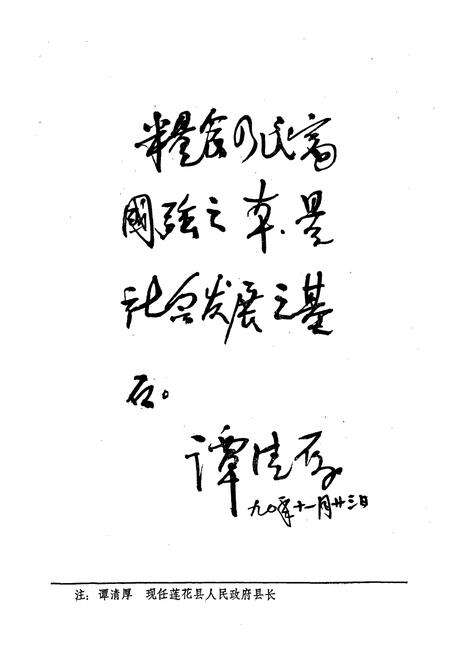 糧食乃民富
國强之本.是
社会发展之基
石。
谭清厚
九〇年十一月廿三日
注：谭清厚 现任莲花县人民政府县长